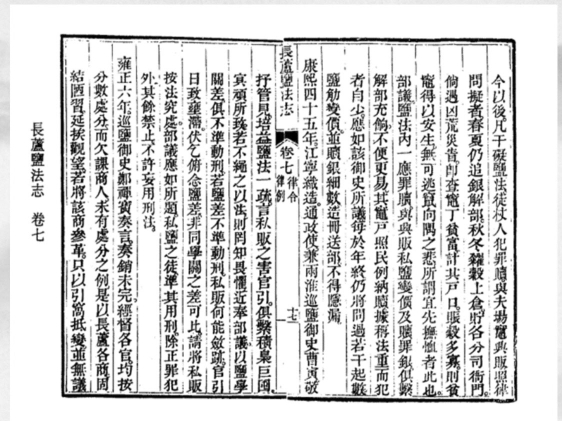 今以後凡干礙鹽法徒杖人犯罪贖與夫場竈興販照律
問擬者春夏仍追銀解部秋冬糴穀上倉貯各分司衙門
倘遇凶荒災眚卽查竈丁貧富計其戶口賑穀多寡則貧
竈得以安生無可逃竄向隅之悲所謂宜先撫恤者此也
部議鹽法內一應罪贖與興販私鹽變價及贓罪銀俱繫
解部充餉不便更易其竈戶照民例納贖據稱法重而犯
者自少應如該御史所議每於年終仍將問過若干起數
鹽觔變價並贖銀細數造冊送部不得隱漏
康熙四十五年江寧織造通政使兼兩淮巡鹽御史曹寅敬
長蘆鹽法志 卷七 律令 律例 十三
抒管見培益鹽法一疏言私販之害官引俱繫積梟巨
頑所致若不繩之以法則罔知畏懼近奉部議以鹽學
關差俱不準動刑若鹽差不準動刑私販何能斂跡官引
日致壅滯伏乞俯念鹽差非同學關之差可比請將私販
按法究處部議應如所題私鹽之徒準其用刑除正罪犯
外其餘禁止不許妄用刑法
雍正六年巡鹽御史鄭禪寶奏言奏銷未完經督各官均按
分數處分而欠課商人未有處分之例是以長蘆各商固
結陋習延挨觀望者將該商參革只以引窩抵變並無議
長蘆鹽法志 卷七